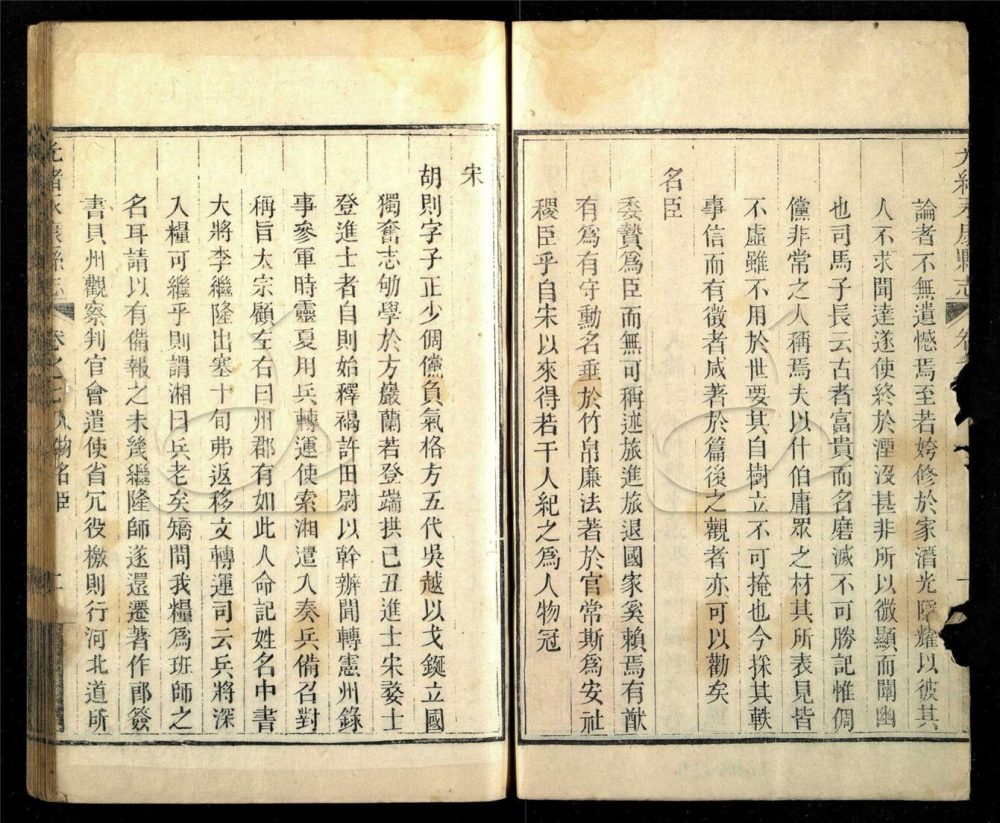 光緒永康縣志
卷
論者不無遺憾焉至若姱修於家潛光隱耀以彼其
人不求聞達遂使終於湮沒甚非所以微顯而闡幽
也司馬子長云古者富貴而名磨滅不可勝記惟倜
儻非常之人稱焉夫以什伯庸眾之材其所表見皆
不虛雖不用於世要其自樹立不可掩也今採其軼
事信而有徵者咸著於篇後之觀者亦可以勸矣
名臣
委贄為臣而無可稱述旅進旅退國家奚賴焉有猷
有為有守勳名垂於竹帛廉法著於官常斯為安社
稷臣乎自宋以來得若干人紀之為人物冠
宋
胡則字子正少倜儻負氣格方五代吳越以戈鋋立國
獨奮志劬學於方巖蘭若登端拱己丑進士宋婺士
登進士者自則始釋褐許田尉以幹辦聞轉憲州錄
事參軍時靈夏用兵轉運使索湘遣入奏兵備召對
稱旨太宗顧左右曰州郡有如此人命記姓名中書
大將李繼隆出塞十旬弗返移文轉運司云兵將深
入糧可繼乎則謂湘曰兵老矣矯問我糧為班師之
名耳請以有備報之未幾繼隆師遂還遷著作郎簽
書貝州觀察判官會遣使省冗役檄則行河北道所
光緒永康縣志
卷之七 人物名臣
二